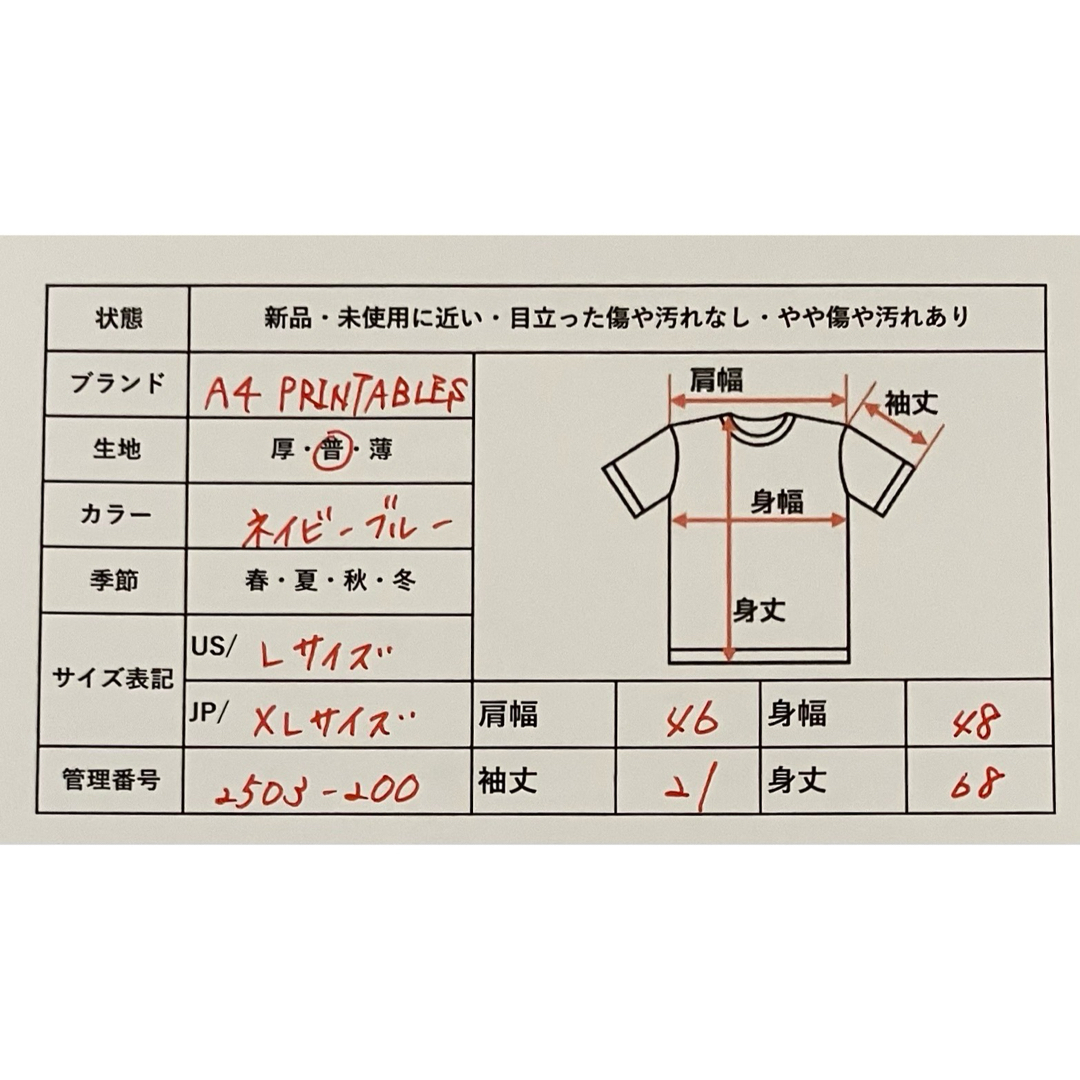 状態 新品・未使用に近い・目立った傷や汚れなし・やや傷や汚れあり
ブランド A4 PRINTABLES
生地 厚・普・薄
カラー ネイビーブルー
季節 春・夏・秋・冬
サイズ表記
US/ Lサイズ
JP/ XLサイズ
管理番号 2503-200
肩幅
袖丈
身幅
身丈
肩幅 46 身幅 48
袖丈 21 身丈 68